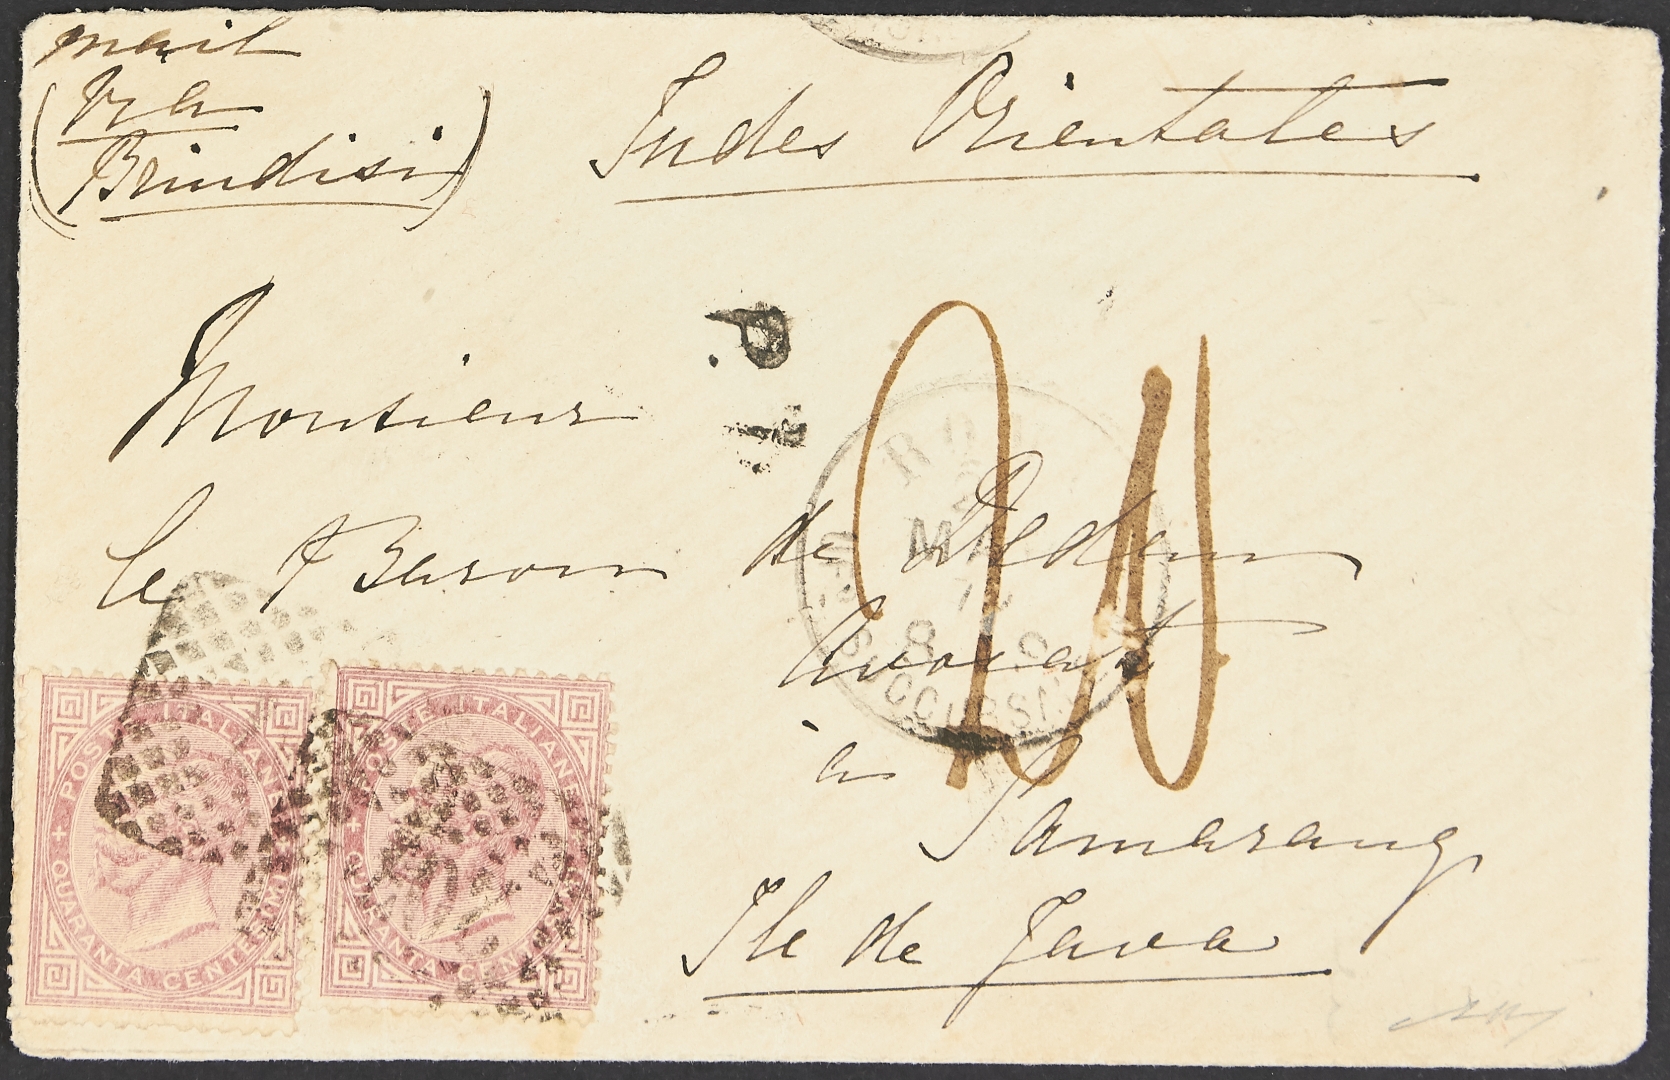 mail
(via
Brindisi)
Indes Orientales
Monsieur
le Baron de Dedem
Avocat
à Samarang
Ile de Java
P.D.
ROMA
MAG
SUCCURSALE
POSTE ITALIANE
QUARANTA CENTESIMI
POSTE ITALIANE
QUARANTA CENTESIMI